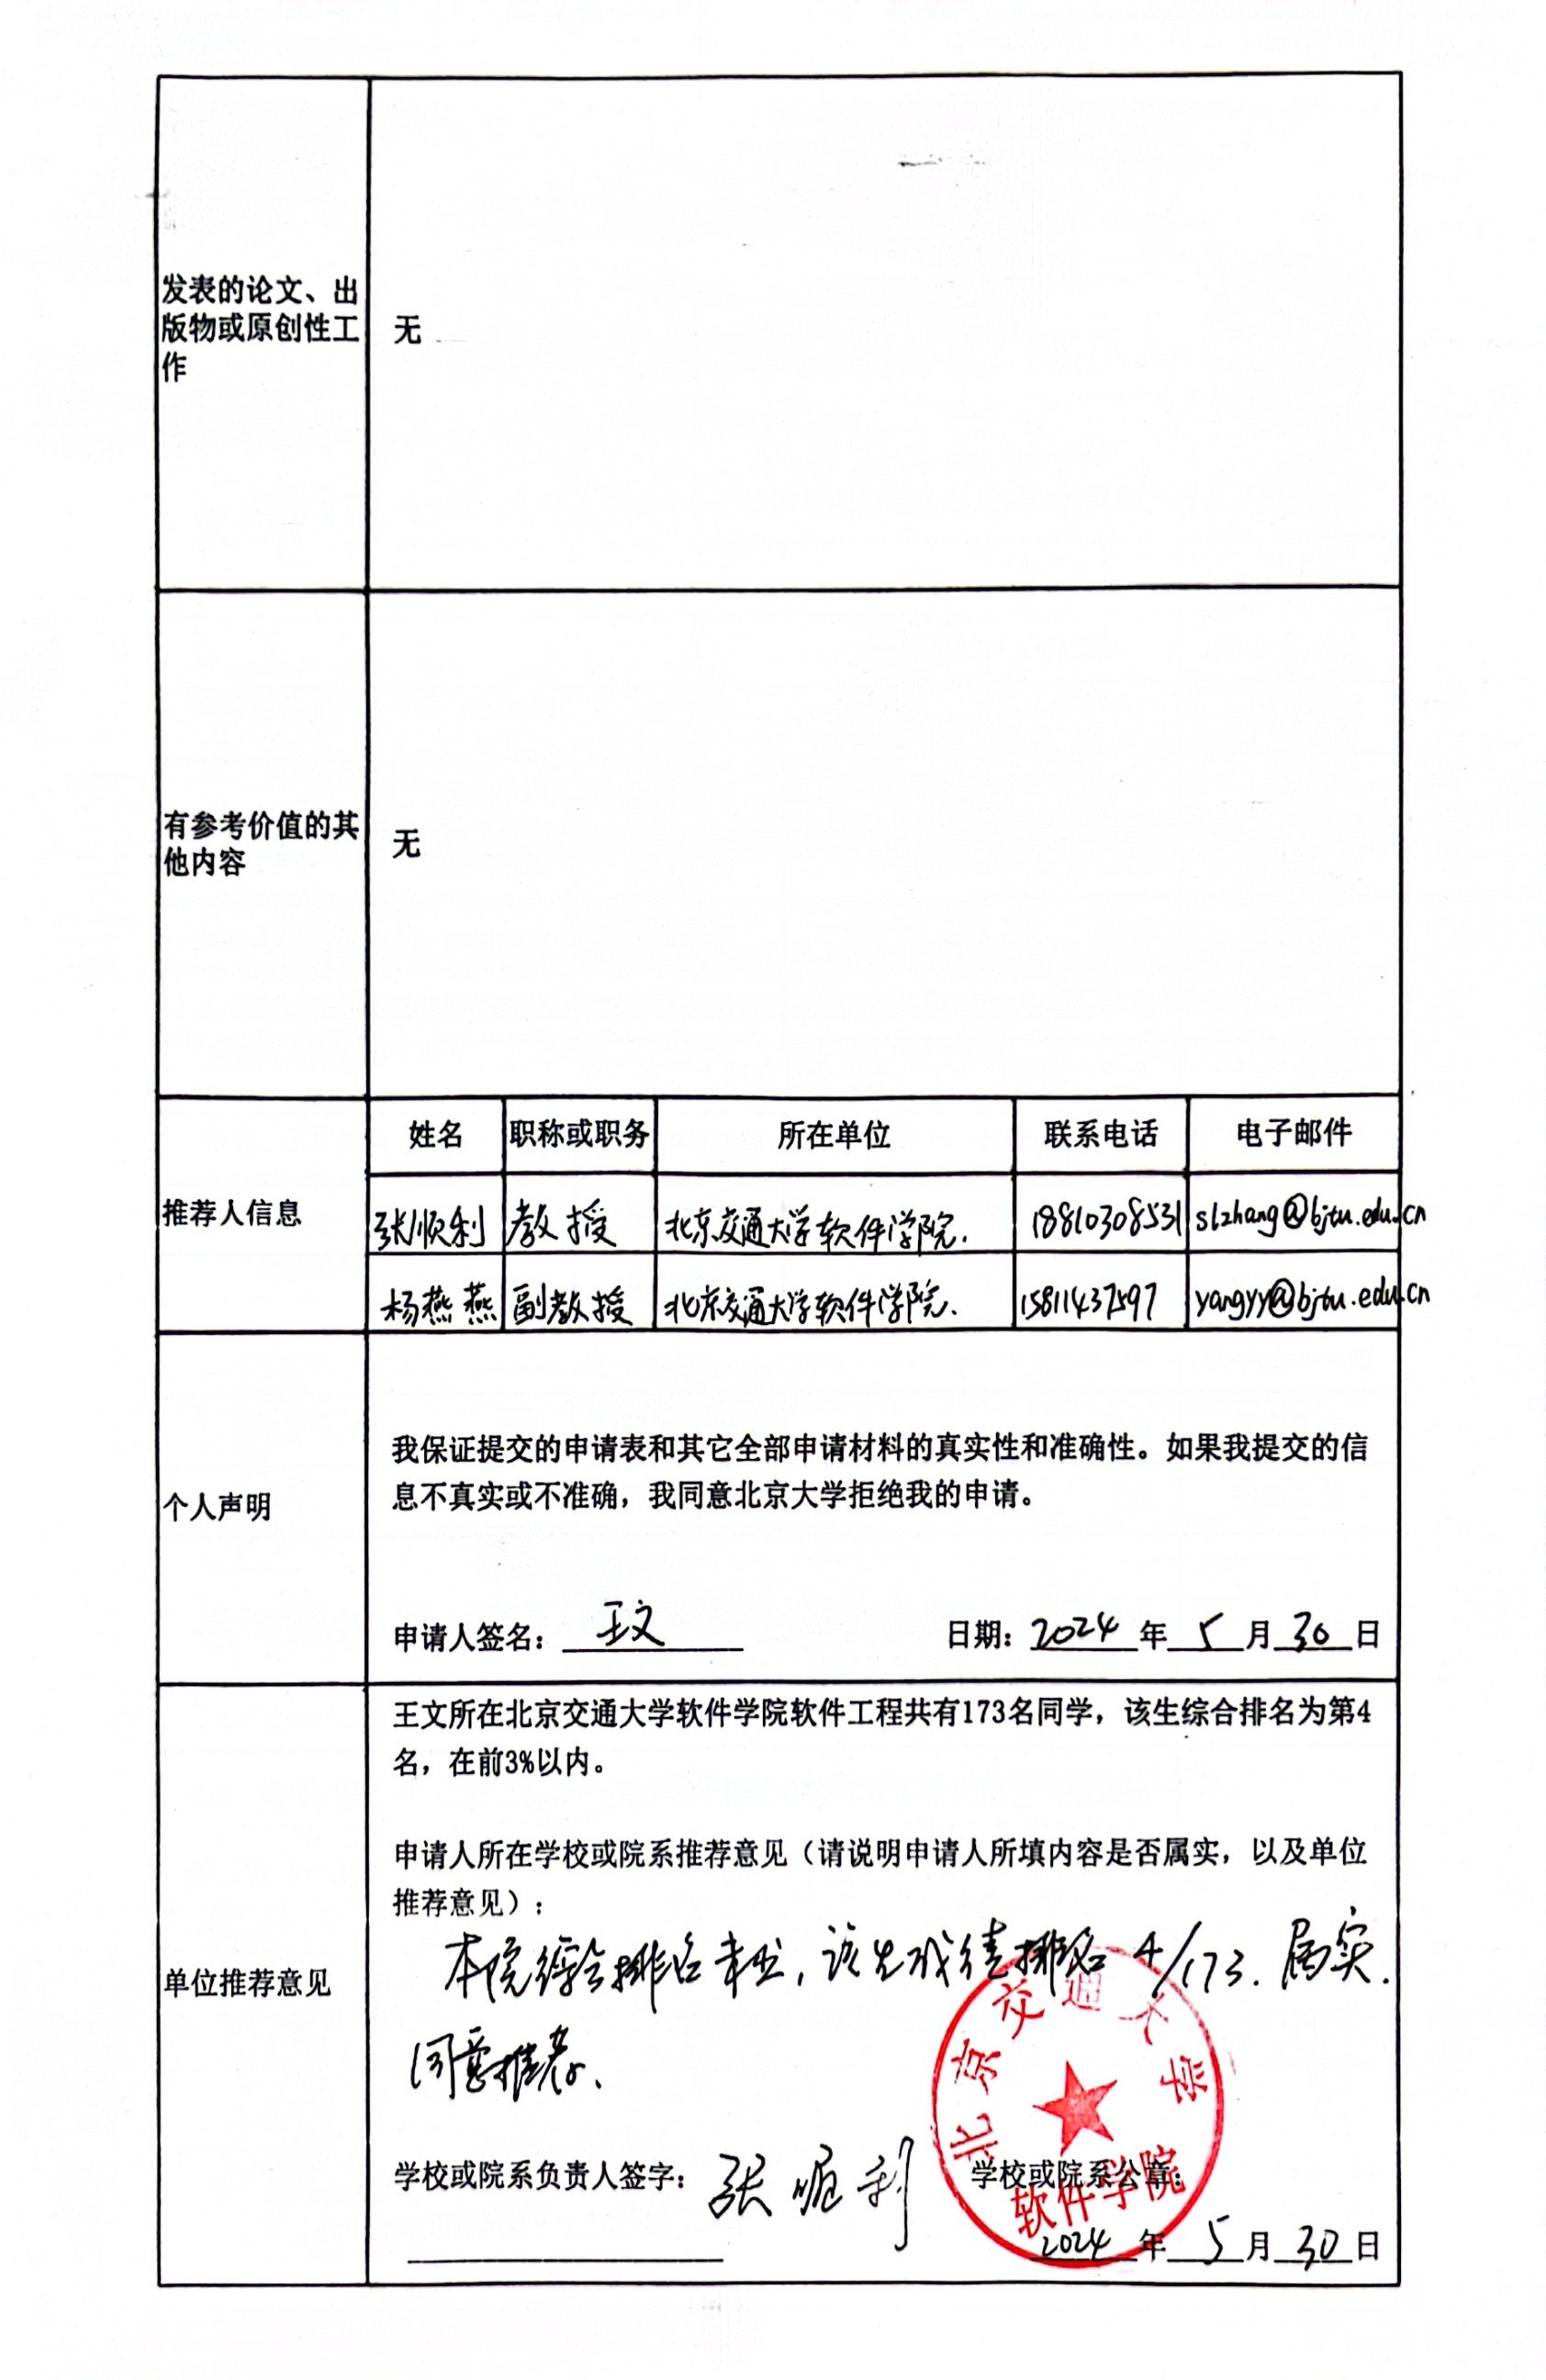 发表的论文、出
版物或原创性工
作
无
有参考价值的其
他内容
无
推荐人信息
姓名 职称或职务 所在单位 联系电话 电子邮件
张顺利 教授 北京交通大学软件学院. 18810308531 slzhang@bjtu.edu.cn
杨燕燕 副教授 北京交通大学软件学院. 15811437597 yangyy@bjtu.edu.cn
个人声明
我保证提交的申请表和其它全部申请材料的真实性和准确性。如果我提交的信
息不真实或不准确，我同意北京大学拒绝我的申请。
申请人签名： 王文 日期：2024 年 5 月 30 日
单位推荐意见
王文所在北京交通大学软件学院软件工程共有173名同学，该生综合排名为第4
名，在前3%以内。
申请人所在学校或院系推荐意见（请说明申请人所填内容是否属实，以及单位
推荐意见）：
本院综合排名 , 该生成绩排名 4/173. 属实.
同意推荐、
学校或院系负责人签字： 张顺利 学校或院系公章：
北京交通大学
软件学院
2024 年 5 月 30 日